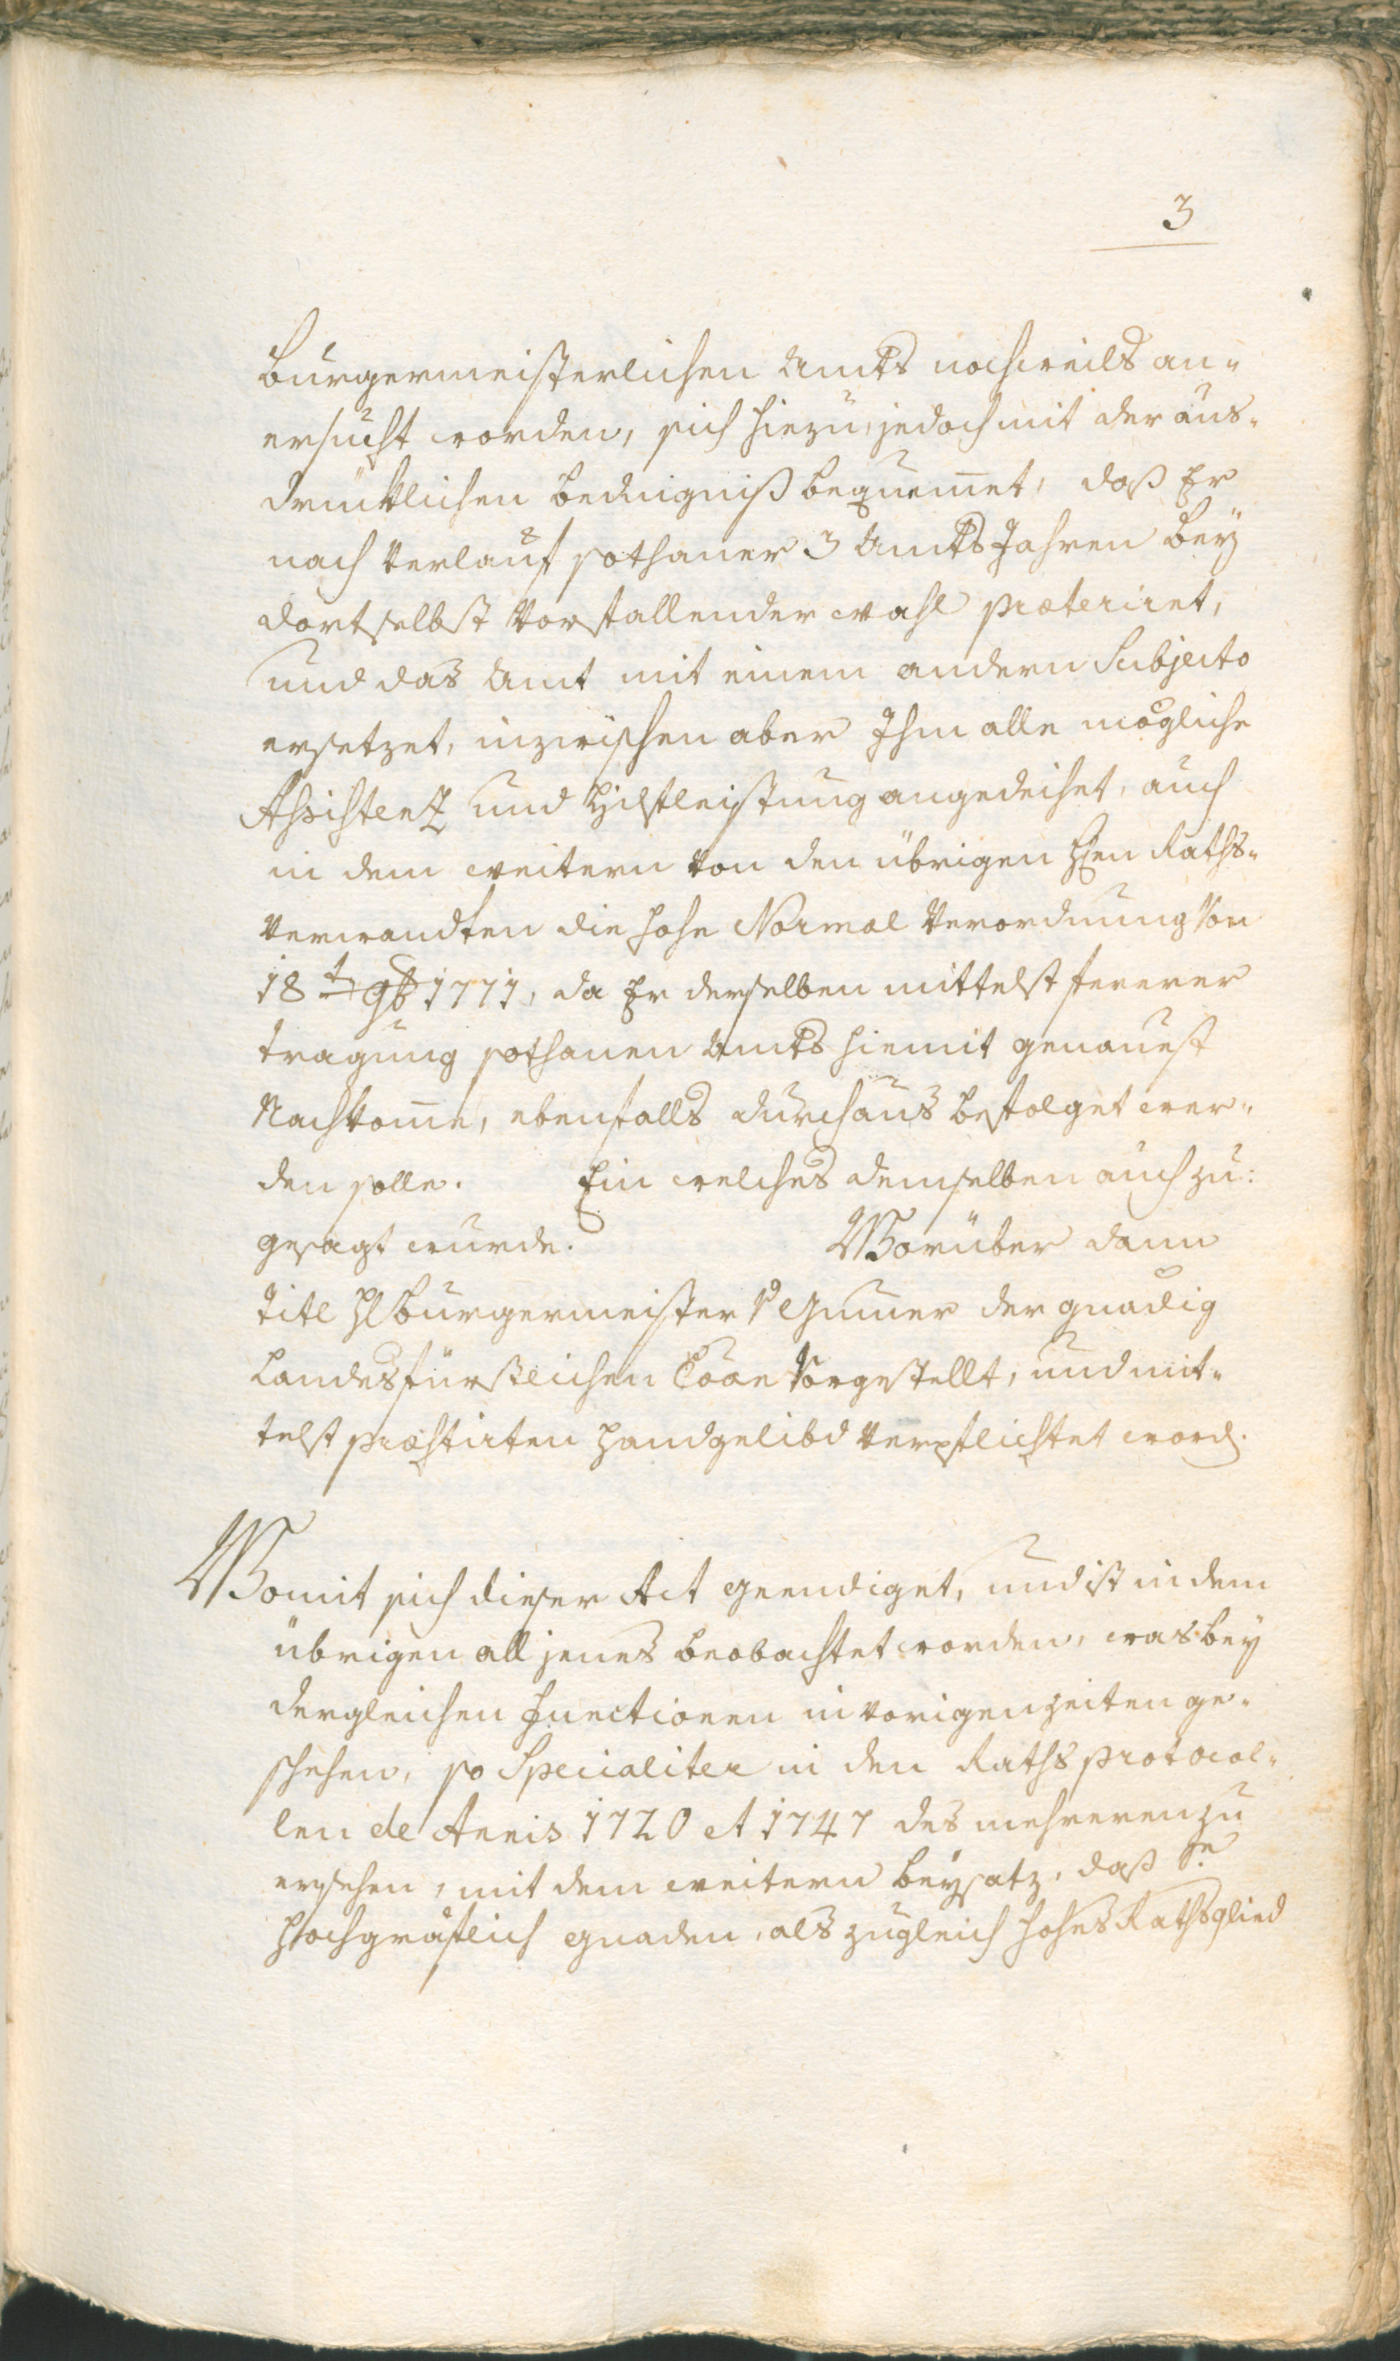 3
burgermeisterlichen Amts nochweils an-
ersucht worden, sich hiezu, jedoch mit der aus-
druklichen bedingniß bequemet, daß Er
nach Verlauf sothaner 3 Amts Jahren bey
dortselbst Vorfallender wahl præteriret,
und das Amt mit einem andern Subjecto
ersetzet, inzwischen aber Ihm alle mögliche
Assistenz und Hilfleistung angedeihet, auch
in dem weitern von den übrigen Hen Raths-
verwandten die hohe Normal Verordnung von
18t 9b 1771, da Er derselben mittelst fererer
tragung sothanen Amts hiemit genauest
Nachkome, ebenfalls durchaus befolget wer-
den solle. Ein welches demselben auch zu:
gesagt wurde. Worüber dann
Titl H burgermeister v der gnädig
Landesfürstlichen Coon Vorgestellt, und mit-
telst præstirten Handgelibd verpflichtet word.
Womit sich dieser Act geendiget, und ist in dem
übrigen all jenes beobachtet worden, was bey
dergleichen Functionen in vorigen zeiten ge-
schehen, so Specialiter in den Raths protocol-
len de Annis 1720 et 1747 des mehreren zu
ersehen, mit dem weitern beysatz, daß Se
Hochgräflich gnaden, als zugleich hohes Rathsglied